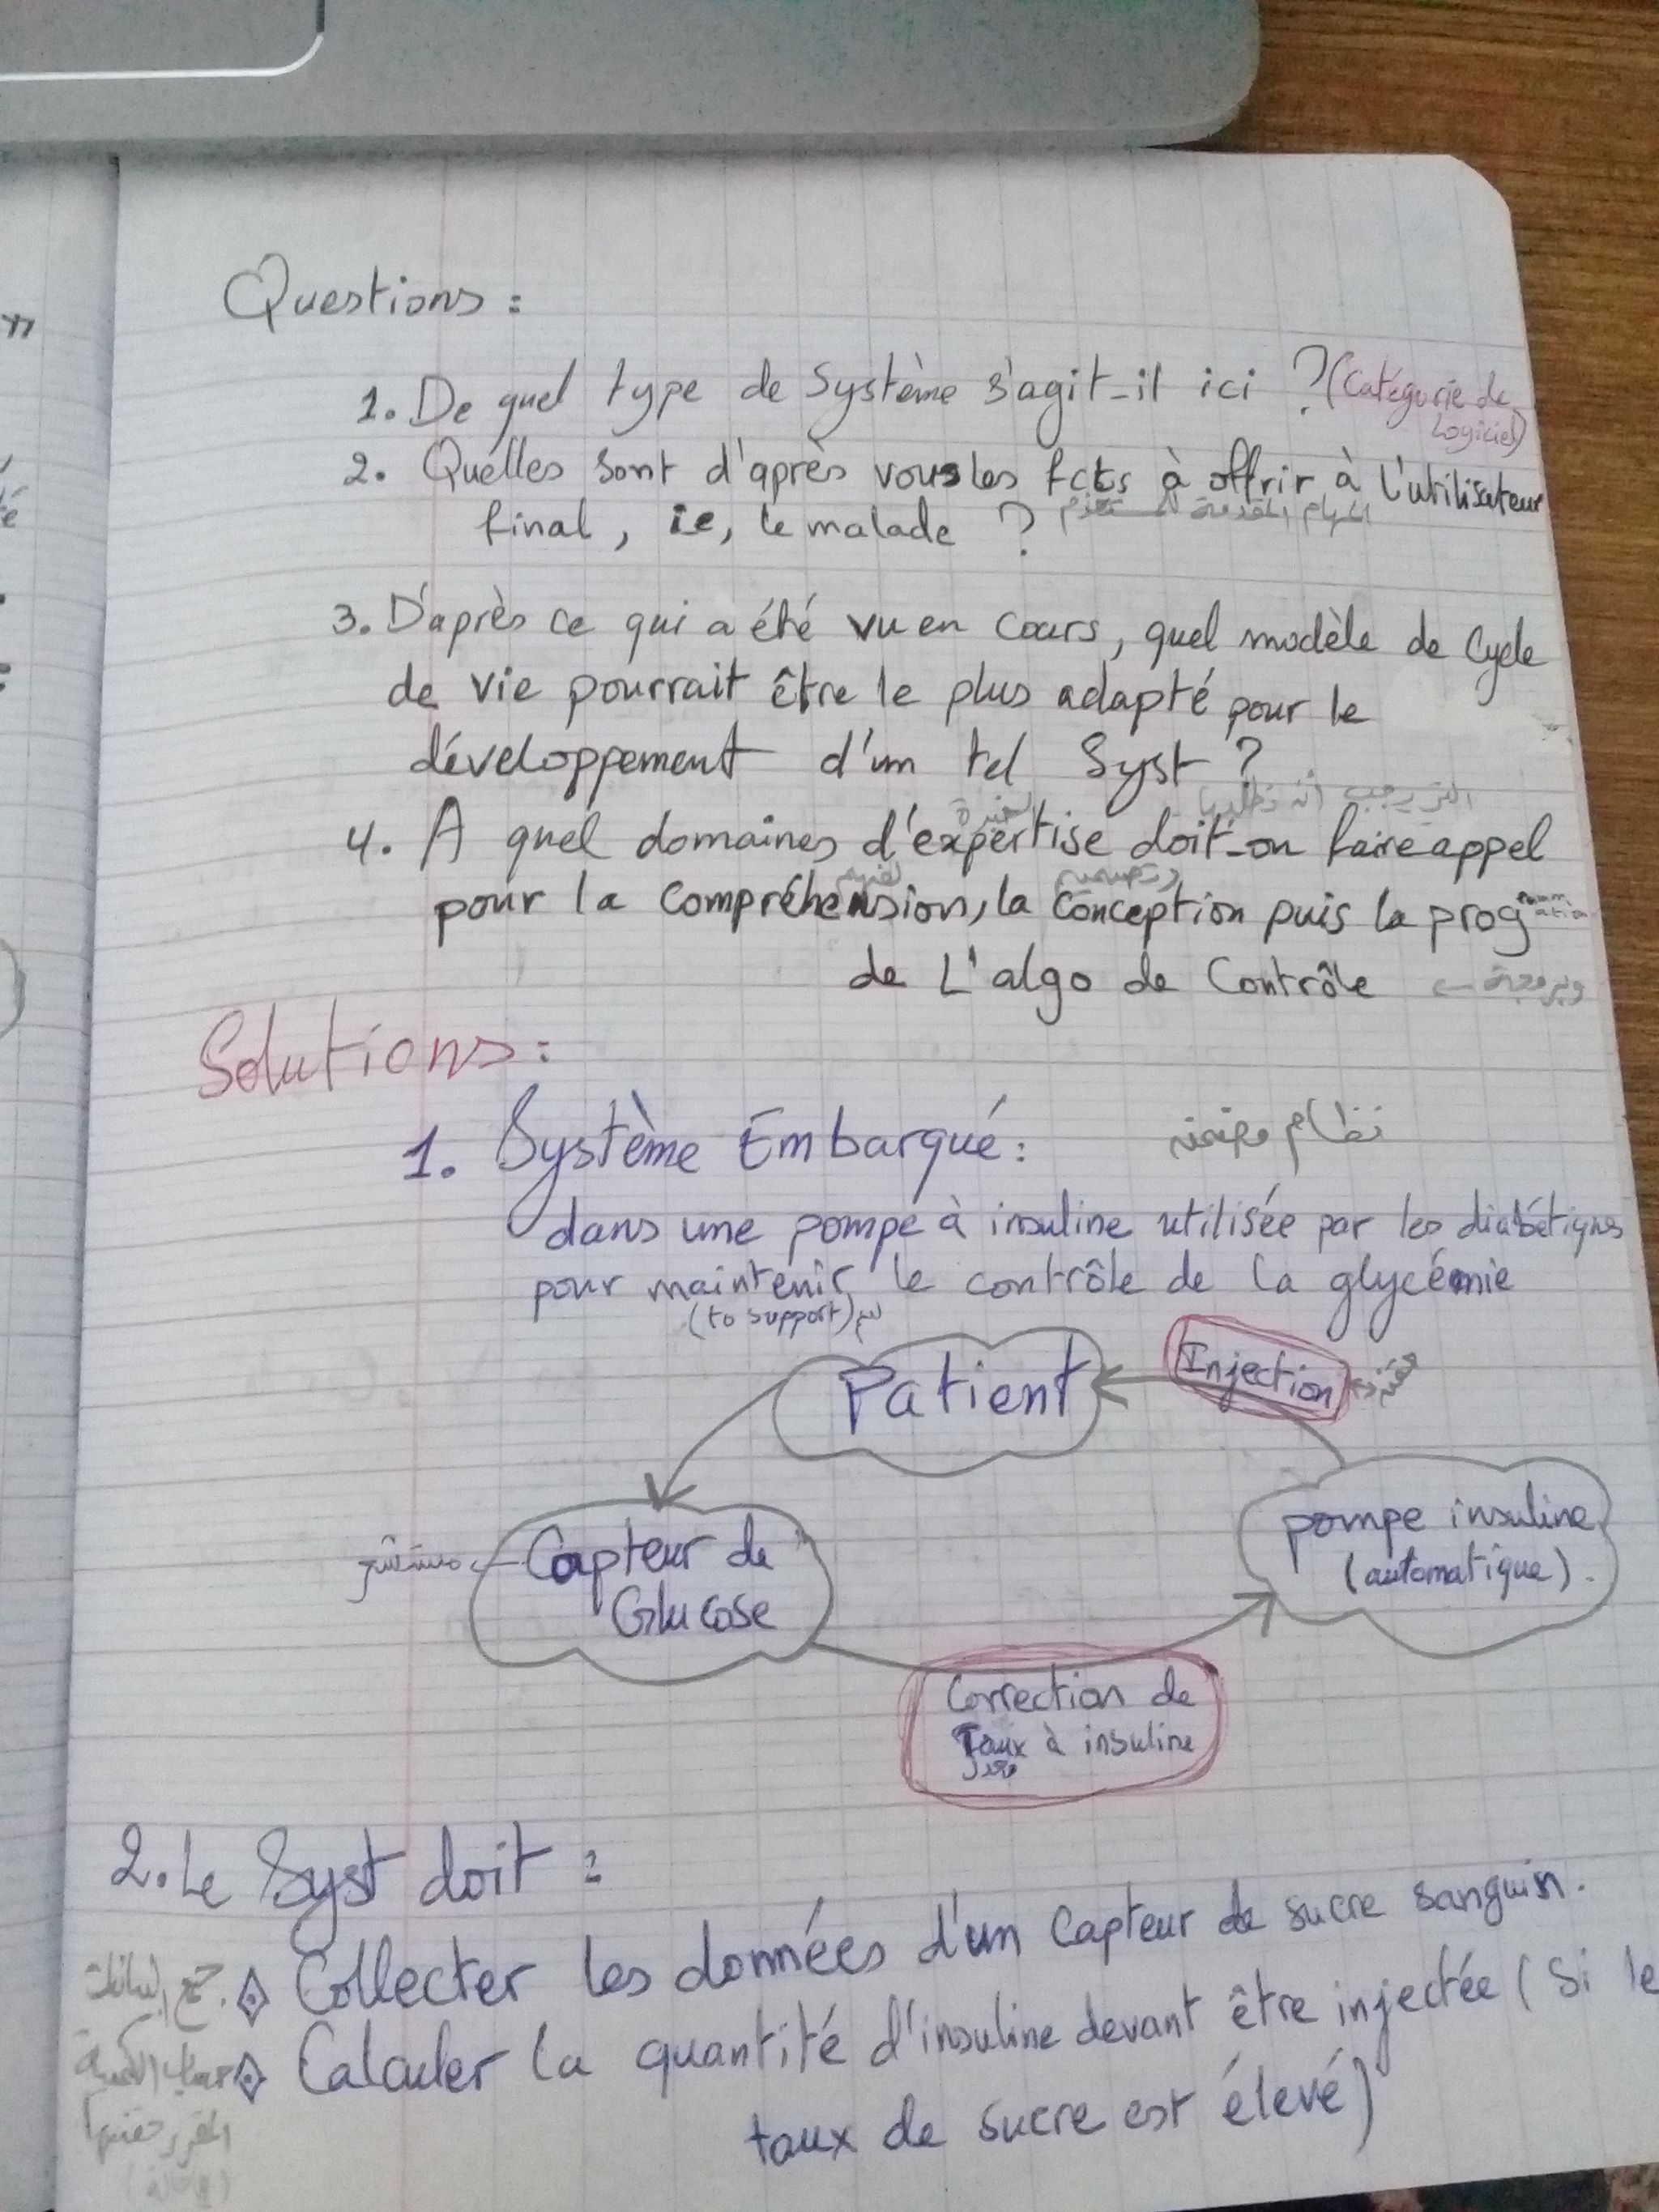 Questions :
1. De quel type de Système s'agit-il ici ? (Catégorie de
Logiciel)
2. Quelles sont d'après vous les fcts à offrir à l'utilisateur
final, ie, le malade ? المهام المقدمة للمستخدم
3. D'après ce qui a été vu en cours, quel modèle de Cycle
de vie pourrait être le plus adapté pour le
développement d'un tel Syst ?
4. A quel domaines d'expertise doit-on faire appel
pour la compréhension, la conception puis la programmation
de L'algo de Contrôle
وبرمجة
Solutions :
1. Système Embarqué : نظام مضمن
dans une pompe à insuline utilisée par les diabétiques
pour maintenir le contrôle de la glycémie
(to support)
Patient
Injection
Capteur de
Glucose
pompe insuline
(automatique).
Correction de
Taux à insuline
2. Le Syst doit :
Collecter les données d'un Capteur de sucre sanguin.
جمع البيانات
Calculer la quantité d'insuline devant être injectée (Si le
حساب الكمية
taux de sucre est élevé)